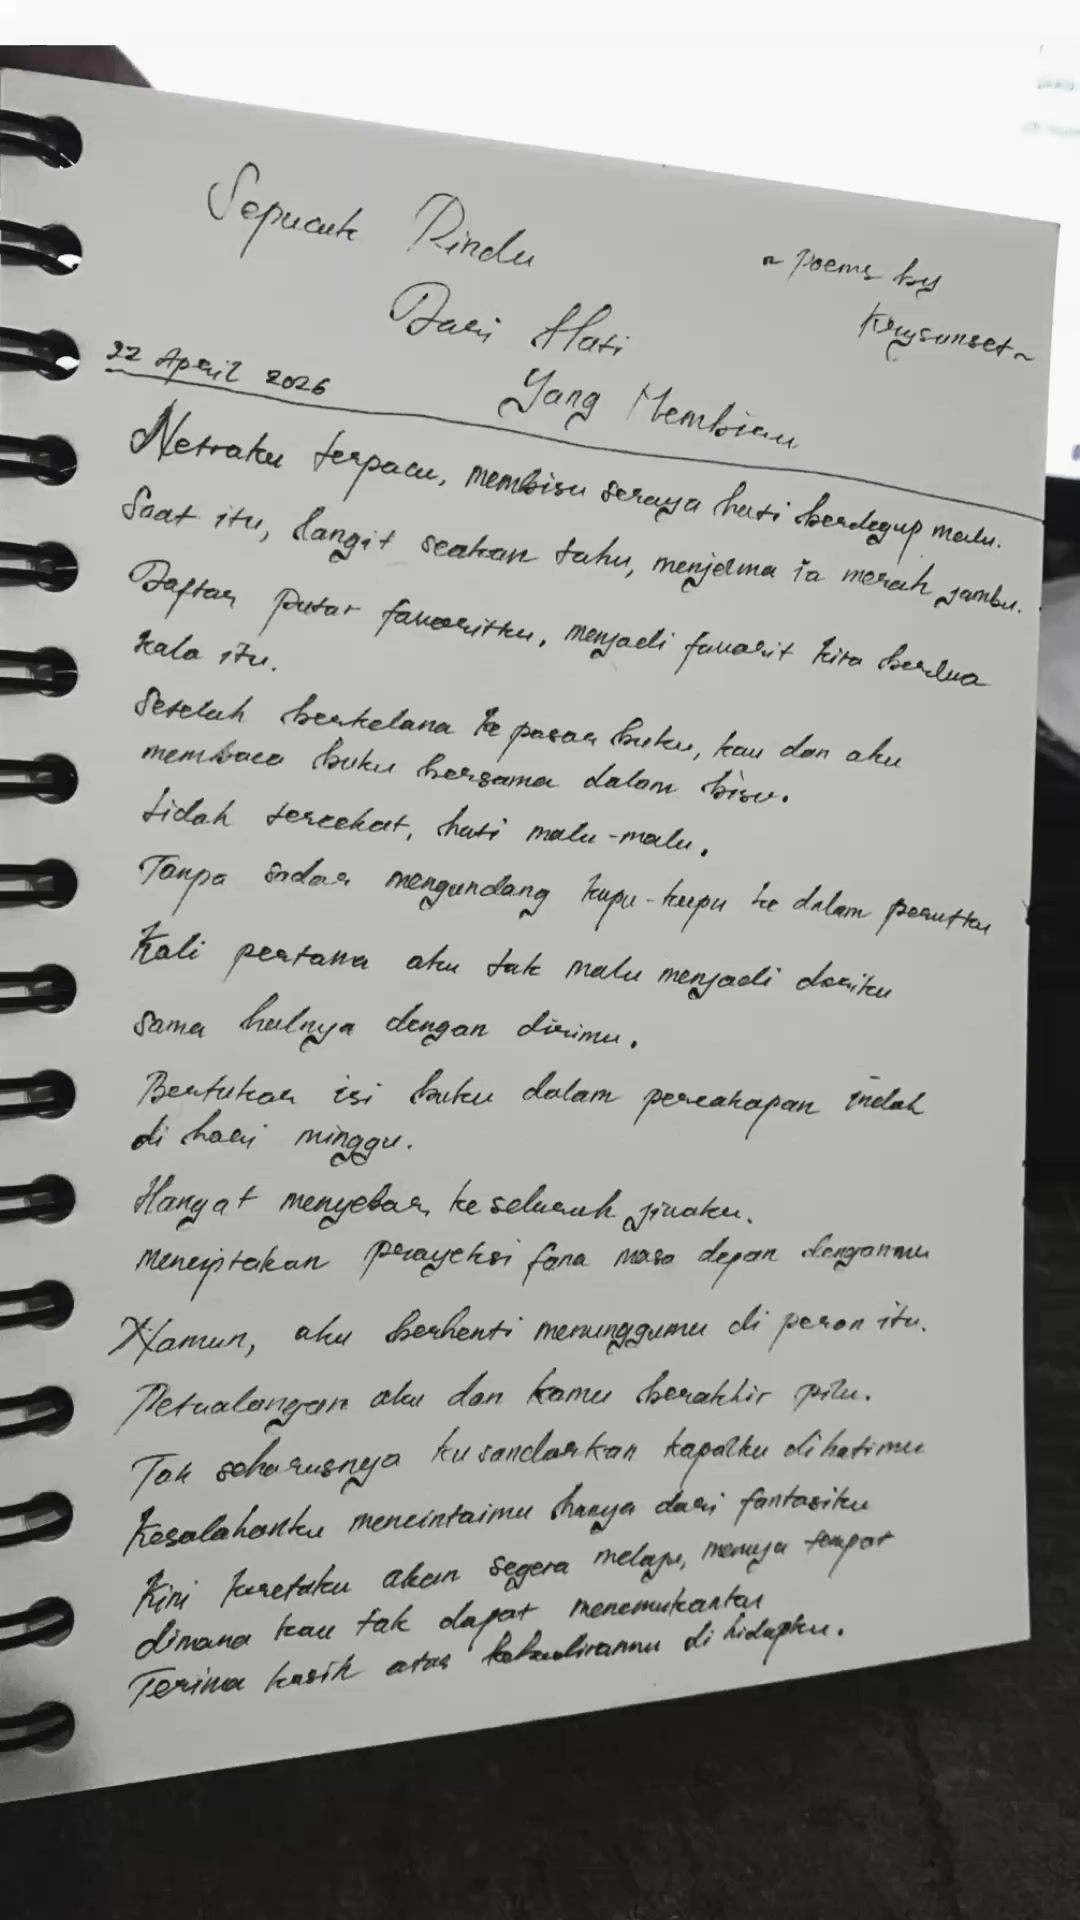 Sepucuk Rindu
Dari Hati
Yang Membiru
~ Poems by
Krysunset ~
22 April 2026
Netraku terpacu, membisu seraya hati berdegup malu.
Saat itu, langit seakan tahu, menjelma ia merah jambu.
Daftar putar favoritku, menjadi favorit kita berdua
kala itu.
Setelah berkelana ke pasar buku, kau dan aku
membaca buku bersama dalam bisu.
Lidah tercekat, hati malu-malu.
Tanpa sadar mengundang kupu-kupu ke dalam perutku
Kali pertama aku tak malu menjadi diriku
sama halnya dengan dirimu.
Bertukar isi buku dalam percakapan indah
di hari minggu.
Hangat menyebar ke seluruh jiwaku.
menciptakan proyeksi fana masa depan denganmu
Namun, aku berhenti menunggumu di peron itu.
Petualangan aku dan kamu berakhir pilu.
Tak seharusnya ku sandarkan kapalku dihatimu
Kesalahanku mencintaimu hanya dari fantasiku
Kini keretaku akan segera melaju, menuju tempat
dimana kau tak dapat menemukanku
Terima kasih atas kehadiranmu di hidupku.